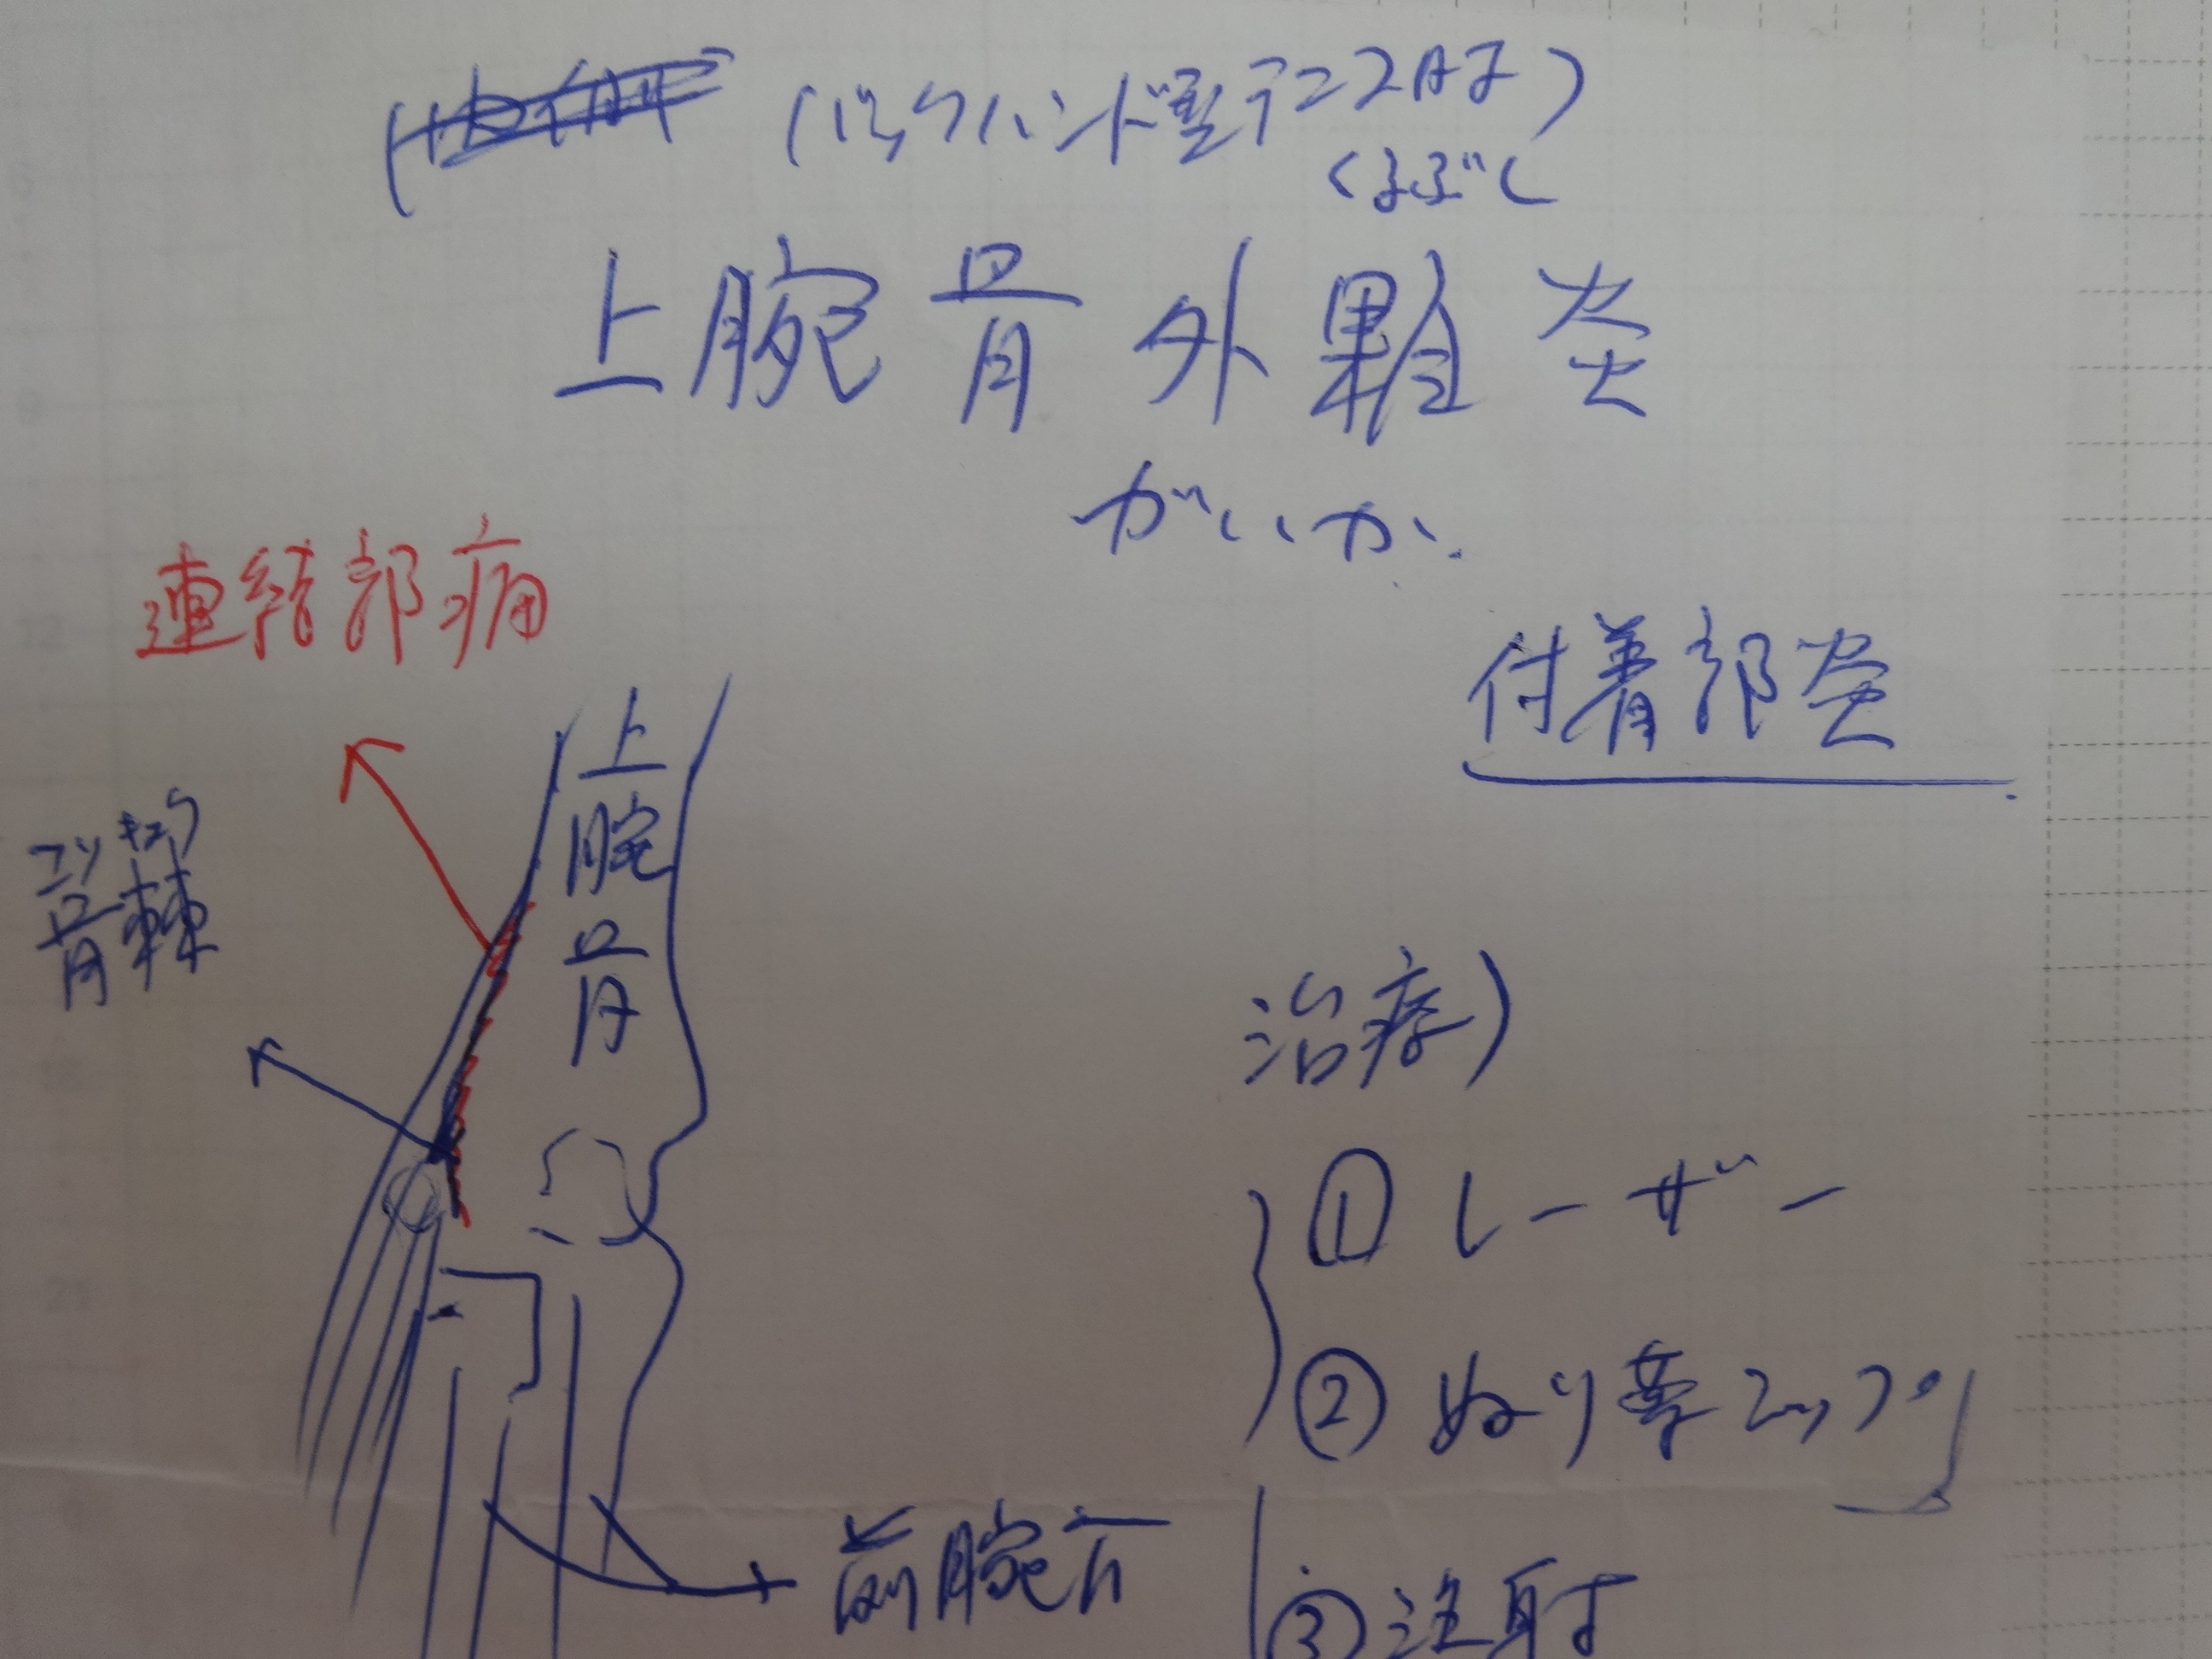 (バックハンド型テニス肘)
くるぶし
上腕骨外顆炎
がいか
連結部痛
付着部炎
上腕骨
コッキョク
骨棘
治療)
① レーザー
② ぬり薬
前腕骨
③ 注射